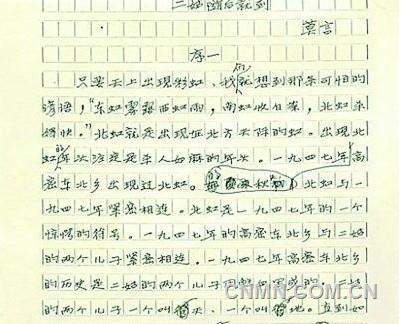 二姑随后就到
莫言
序一
只要天上出现彩虹，我们就想到那条可怕的
谚语，“东虹雾露西虹雨，南虹收白菜，北虹杀
得快。”北虹就是出现在北方天际的虹。出现北
虹的年头注定是杀人如麻的年头。一九四七年高
密东北乡出现过北虹。北虹与一
九四七年紧密相连。北虹是一九四七年的一个
的符号。一九四七年的高密东北乡与二姑
的两个儿子紧密相连。一九四七年高密东北乡
的历史是二姑的两个儿子的。二姑
的两个儿子一个叫天，一个叫地。直到如
CNMN.COM.CN